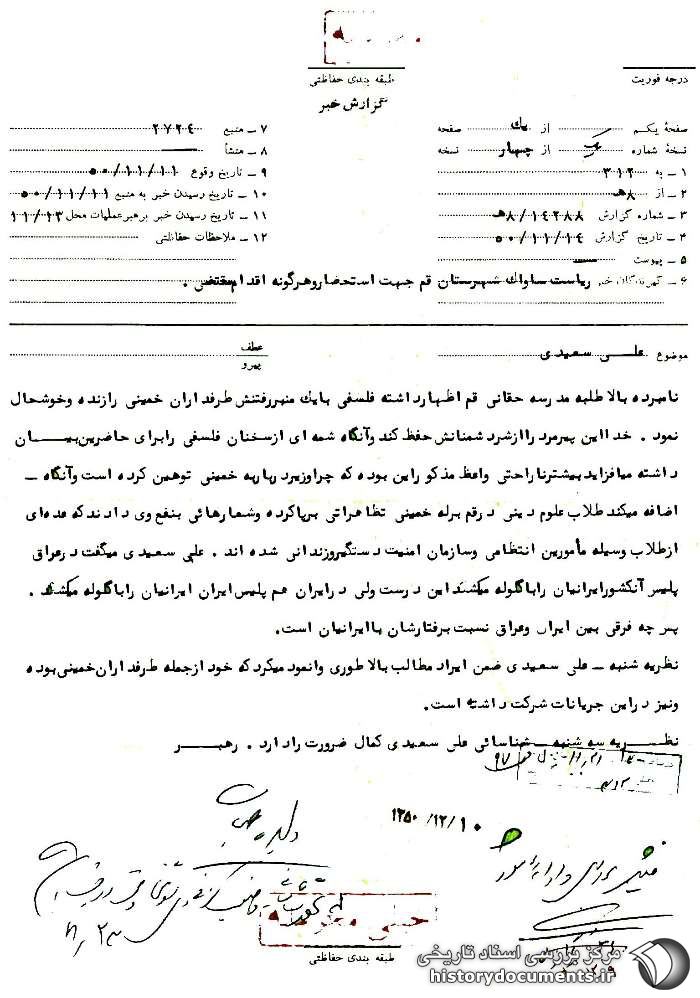 طبقه بندی حفاظتی
درجه فوریت
گزارش خبر
صفحهٔ یکم از یک صفحه
نسخهٔ شماره یک از چهار نسخه
۱ ـ به ۳۱۲
۲ ـ از ۸هـ
۳ ـ شماره گزارش ۸/۱۴۲۸۸هـ
۴ ـ تاریخ گزارش ۵۰/۱۱/۱۴
۵ ـ پیوست
۶ ـ گیرندگان خبر ریاست ساواک شهرستان قم جهت استحضار و هرگونه اقدام مقتضی .
۷ ـ منبع ۲۷۲۴
۸ ـ منشأ
۹ ـ تاریخ وقوع ۵۰/۱۱/۱۱
۱۰ ـ تاریخ رسیدن خبر به منبع ۵۰/۱۱/۱۱
۱۱ ـ تاریخ رسیدن خبر برهبر عملیات محل ۱۱/۱۳
۱۲ ـ ملاحظات حفاظتی
موضوع علی سعیدی
عطف
پیرو
نامبرده بالا طلبه مدرسه حقانی قم اظهار داشته فلسفی با یک منبر رفتنش طرفداران خمینی را زنده و خوشحال
نمود . خدا این پیرمرد را از شر دشمنانش حفظ کند و آنگاه شمه ای از سخنان فلسفی را برای حاضرین بیان
داشته میافزاید بیشتر ناراحتی واعظ مذکور این بوده که چرا وزیر درباره خمینی توهین کرده است و آنگاه ـ
اضافه میکند طلاب علوم دینی در قم برله خمینی تظاهراتی برپا کرده و شعارهائی بنفع وی دادند که عده ای
از طلاب وسیله مأمورین انتظامی و سازمان امنیت دستگیر و زندانی شده اند . علی سعیدی میگفت در عراق
پلیس آنکشور ایرانیان را با گلوله میکشند این درست ولی در ایران هم پلیس ایران ایرانیان را با گلوله میکشند .
پس چه فرقی بین ایران و عراق نسبت برفتارشان با ایرانیان است.
نظریه شنبه ـ علی سعیدی ضمن ایراد مطالب بالا طوری وانمود میکرد که خود از جمله طرفداران خمینی بوده
و نیز در این جریانات شرکت داشته است.
نظریه سه شنبه ـ شناسائی علی سعیدی کمال ضرورت را دارد . رهبر
۱۳۵۰/۱۲/۱۰
طبقه بندی حفاظتی
مرکز بررسی اسناد تاریخی
historydocuments.ir